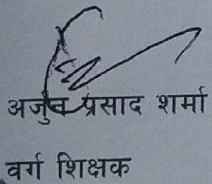 अर्जुन प्रसाद शर्मा
वर्ग शिक्षक